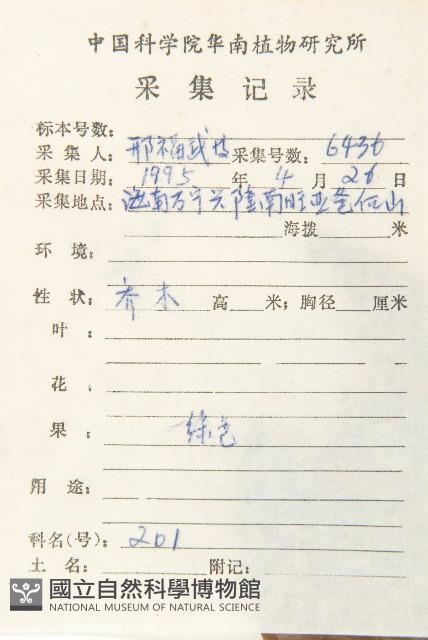 中国科学院华南植物研究所
采集记录
标本号数:
采集人: 邢福武 采集号数: 6436
采集日期: 1995 年 4 月 26 日
采集地点: 海南万宁兴隆南旺 山
海拨 米
环境:
性状: 乔木 高 米; 胸径 厘米
叶:
花:
果: 绿色
用途:
科名(号): 201
土名: 附记:
國立自然科學博物館
NATIONAL MUSEUM OF NATURAL SCIENCE